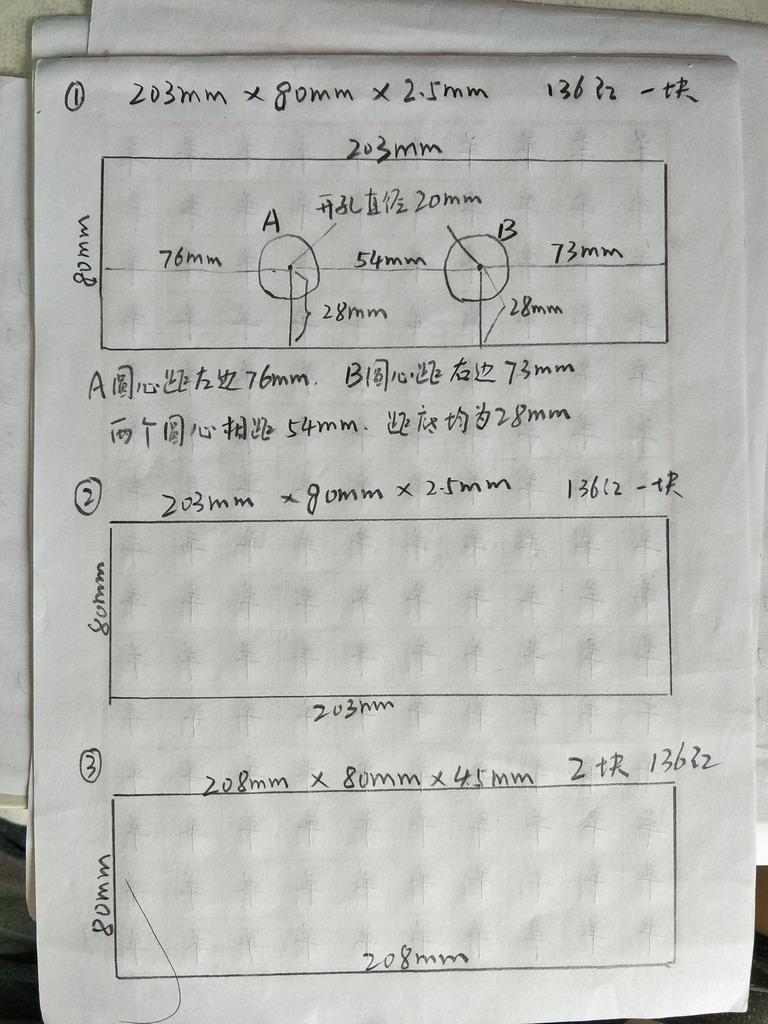 ① 203mm × 80mm × 2.5mm 136红 一块
203mm
开孔直径20mm
A
B
80mm
76mm
54mm
73mm
28mm
28mm
A圆心距左边76mm. B圆心距右边73mm
两个圆心相距54mm. 距底均为28mm
② 203mm × 80mm × 2.5mm 136红 一块
80mm
203mm
③ 208mm × 80mm × 4.5mm 2块 136红
80mm
208mm